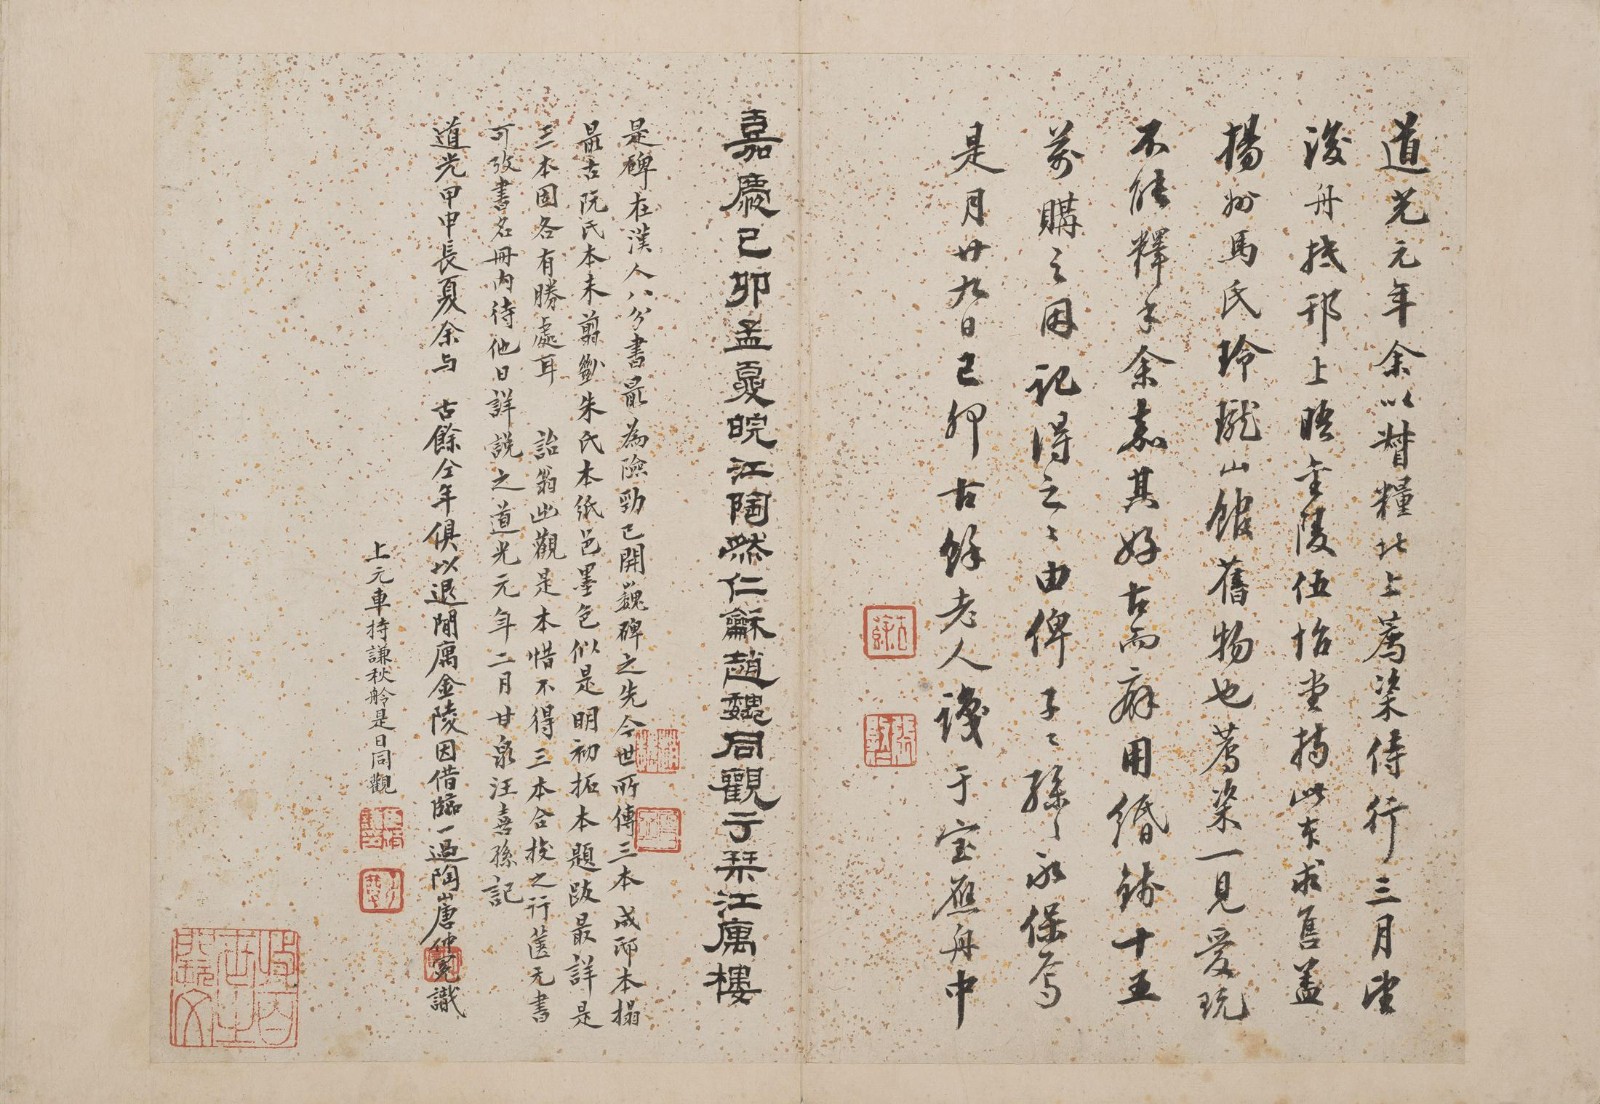 道光元年余以督糧北上薦粢侍行三月望
後舟抵邗上晤金陵伍怡堂持此本求售蓋
揚州馬氏玲瓏山館舊物也薦粢一見愛玩
不能釋手余嘉其好古而癖用緡錢十五
萬購之因記得之之由俾子子孫孫永保焉
是月廿九日己卯古餘老人識于宝應舟中
嘉慶己卯孟夏皖江陶然仁龢趙魏同觀于琹江寓樓
是碑在漢人八分書最為險勁已開巍碑之先今世所傳三本成邸本搨
最古阮氏本未翦劙朱氏本紙色墨色似是明初拓本題跋最詳是
三本固各有勝處耳 詒翁出觀是本惜不得三本合挍之行篋无書
可攷書名冊内待他日詳說之道光元年二月甘泉汪喜孫記
道光甲申長夏余与 古餘仝年俱以退閒寓金陵因借臨一過陶唐仲冕識
上元車持謙秋舲是日同觀